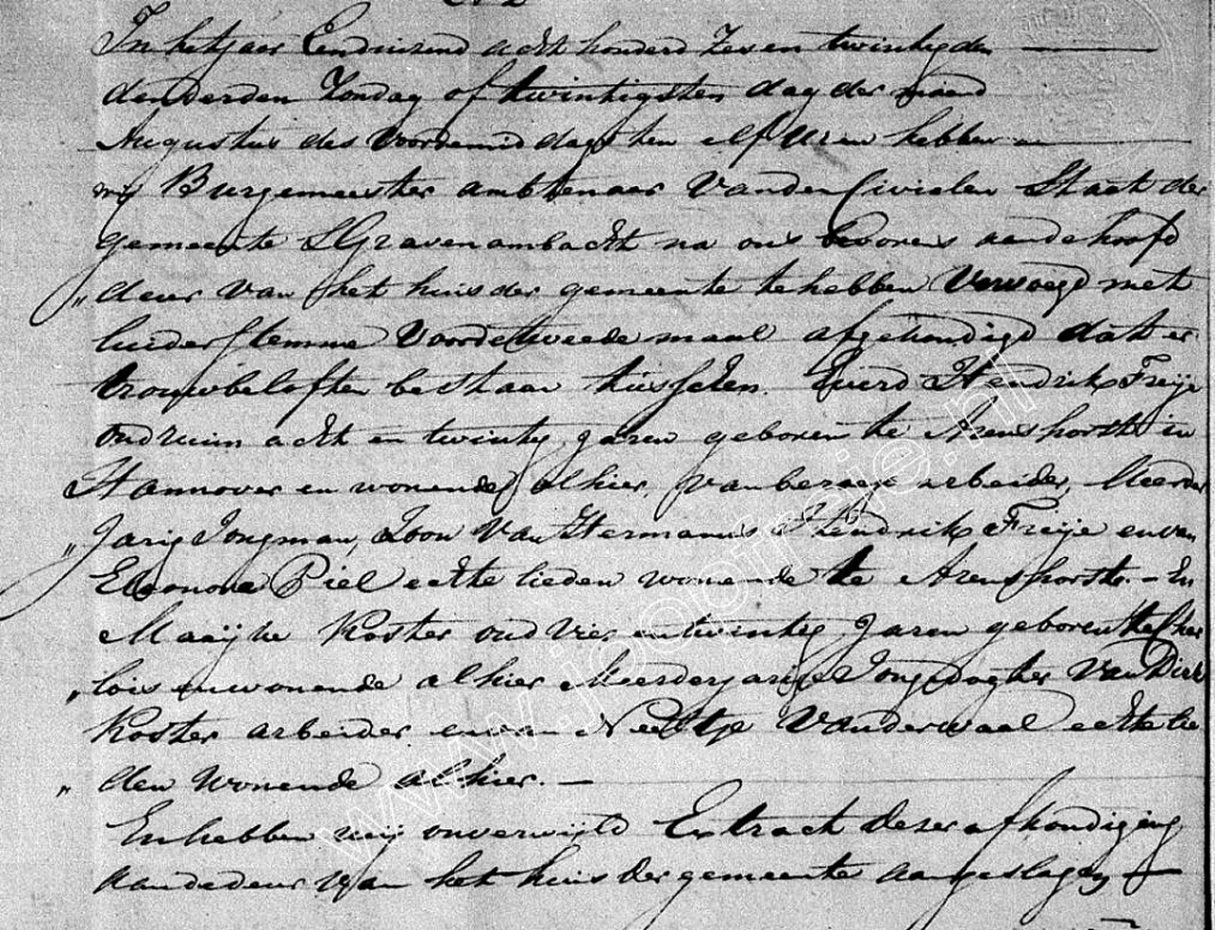 In het jaar Eenduizend acht honderd Zes en twintig den
den derden Zondag of twintigsten dag der maand
Augustus des Voordemiddags ten elf Uren hebben
wij Burgemeester ambtenaar Van den Civielen Staat der
gemeente SGravenambacht na ons bevorens aan de hoofd
„deur van het huis der gemeente te hebben Vervoegd met
luider stemme Voor de tweede maal afgekondigd dat er
trouwbeloften bestaan tusschen Everd Hendrik Freije
oud ruim acht en twintig Jaren geboren te Arenshorst in
Hannover en wonende alhier, van beroep arbeider, Meerder
„Jarig Jongman, Zoon Van Hermanus Hendrik Freije en van
Eleonora Piel echte lieden wonende te Arenshorst. - En
Maaijke Koster oud vier en twintig Jaren geboren te Char
„lois en wonende alhier Meerderjarige Jongedogter Van Dirk
Koster arbeider en van Neeltje Van der waal echte lie
„den wonende alhier. —
En hebben wij onverwijld Extract dezer afkondiging
aan de deur van het huis der gemeente aangeslagen
www.joopfreije.nl